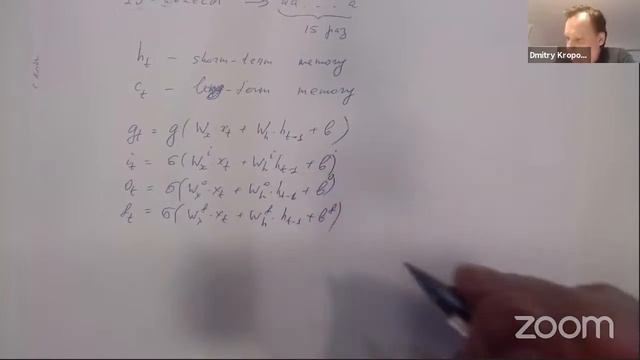 → aa . . . a
15 раз
h_t – short-term memory
c_t – long-term memory
g_t = g(W_x x_t + W_h h_{t-1} + b)
i_t = σ(W_x^i x_t + W_h^i h_{t-1} + b^i)
o_t = σ(W_x^o · x_t + W_h^o · h_{t-1} + b^o)
f_t = σ(W_x^f · x_t + W_h^f · h_{t-1} + b^f)
Dmitry Kropo...
zoom